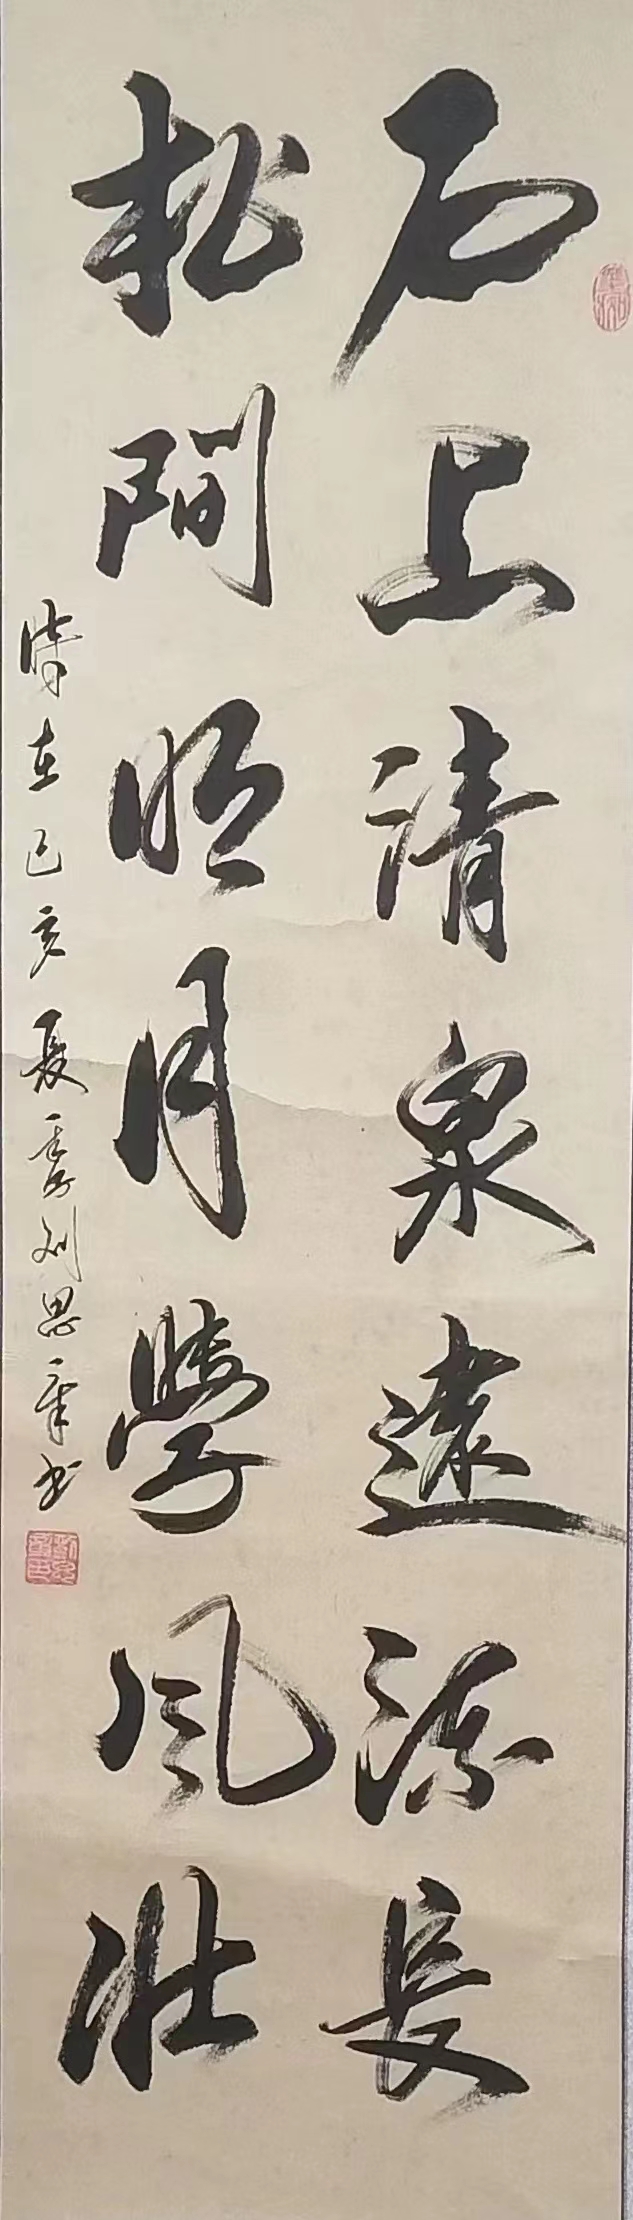 石上清泉遠流長
松間明月學風壯
時在己亥夏刘思章书